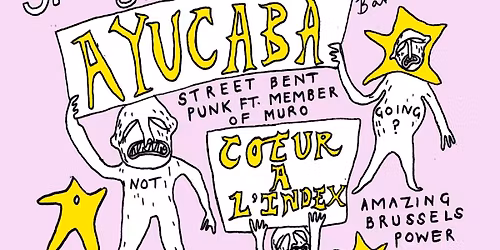 AYUCABA
STREET BENT
PUNK FT. MEMBER
OF MURO
GOING
?
COEUR
A
L'INDEX
NOT!
AMAZING
BRUSSELS
POWER